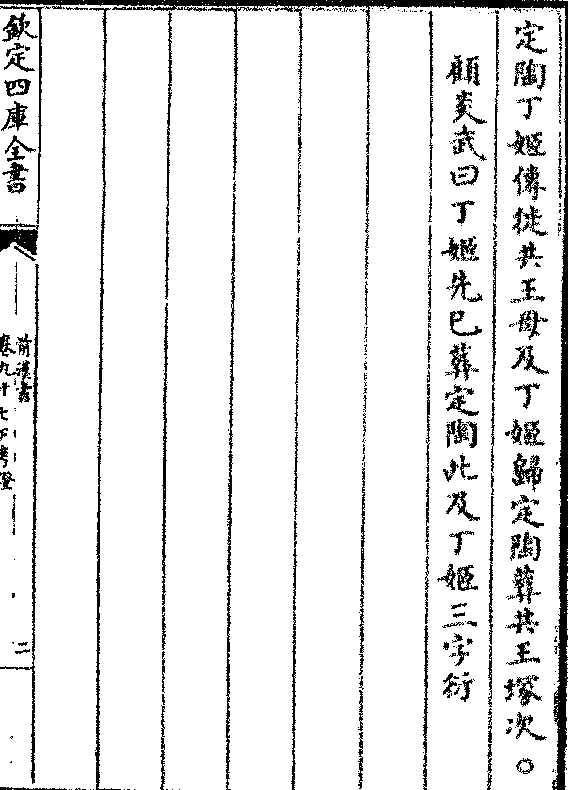 定陶丁姬傳徙共王母及丁姬歸定陶葬共王塚次○
顧炎武曰丁姬先已葬定陶此及丁姬三字衍
欽定四庫全書
前漢書
卷九十七下考證
二